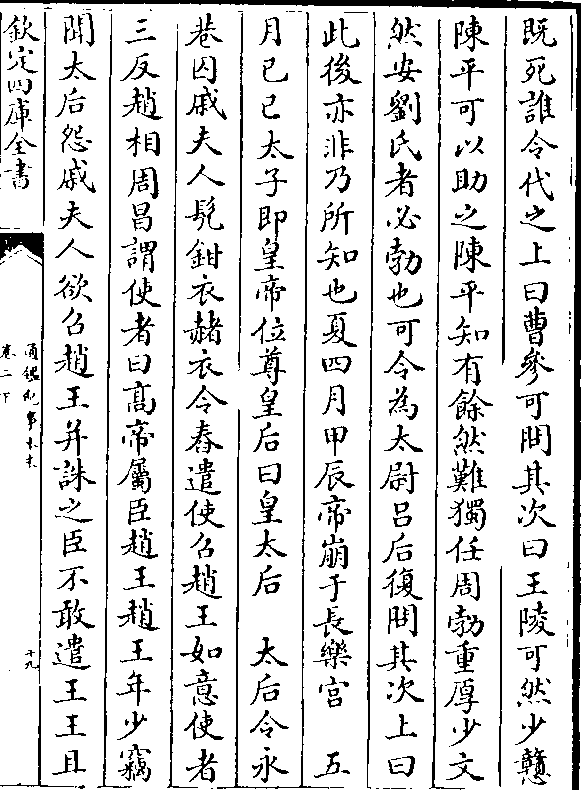 既死誰令代之上曰曹參可問其次曰王陵可然少戇
陳平可以助之陳平知有餘然難獨任周勃重厚少文
然安劉氏者必勃也可令為太尉吕后復問其次上曰
此後亦非乃所知也夏四月甲辰帝崩于長樂宫　五
月己巳太子即皇帝位尊皇后曰皇太后　太后令永
巷囚戚夫人髠鉗衣赭衣令舂遣使召趙王如意使者
三反趙相周昌謂使者曰髙帝屬臣趙王趙王年少竊
聞太后怨戚夫人欲召趙王并誅之臣不敢遣王王且
欽定四庫全書
通鑑紀事本末
卷二下
十九